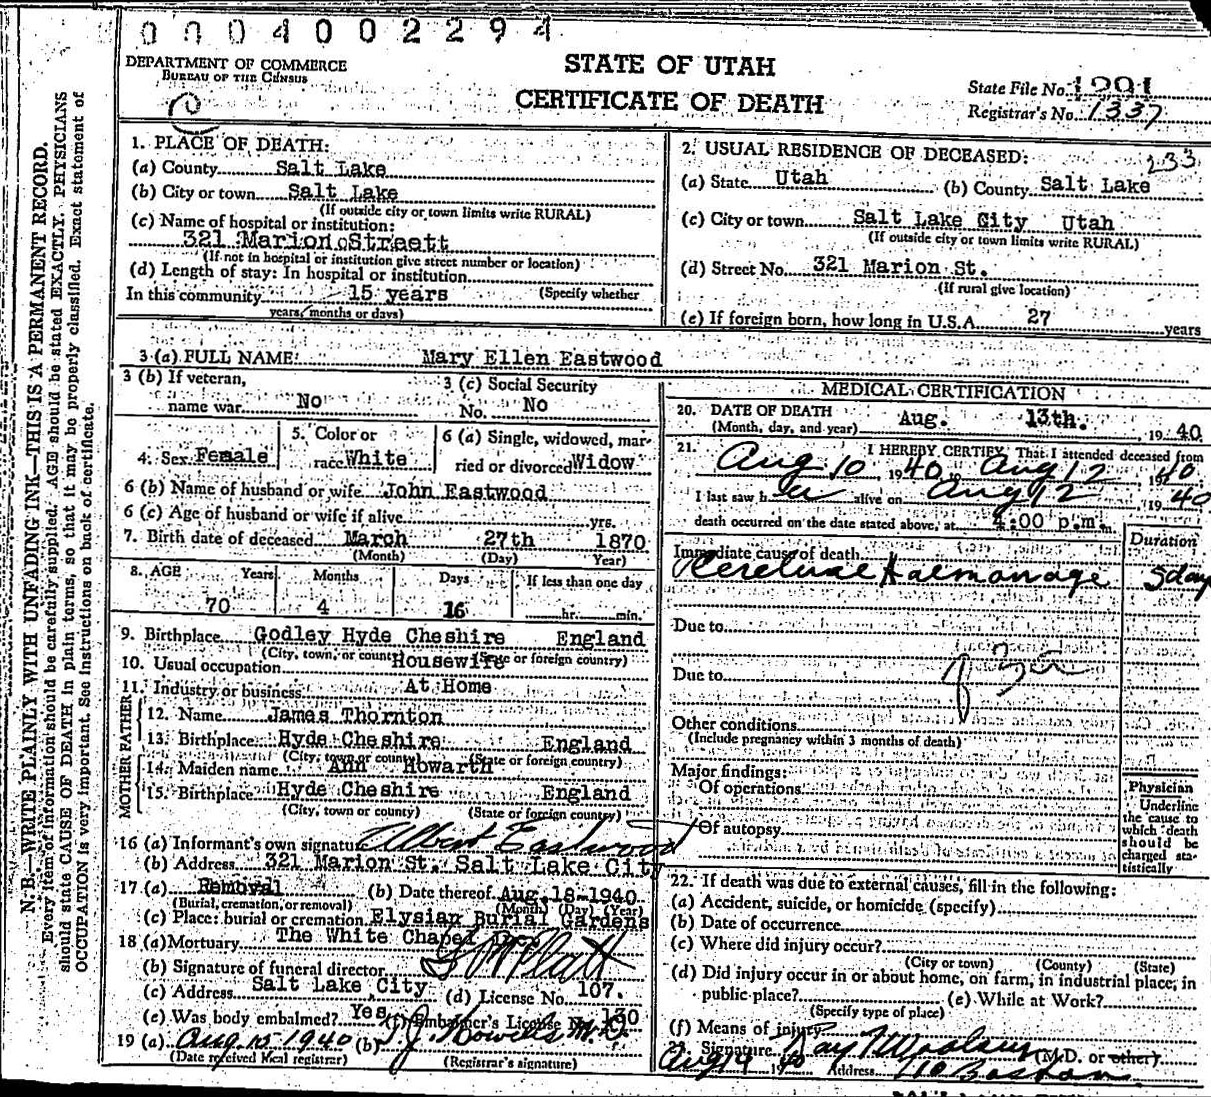 0 0 0 4 0 0 2 2 9 4
DEPARTMENT OF COMMERCE
BUREAU OF THE CENSUS
STATE OF UTAH
CERTIFICATE OF DEATH
State File No.
Registrar's No. 1337
1. PLACE OF DEATH:
(a) County Salt Lake
(b) City or town Salt Lake
(If outside city or town limits write RURAL)
(c) Name of hospital or institution:
321 Marion Streett
(If not in hospital or institution give street number or location)
(d) Length of stay: In hospital or institution
In this community 15 years (Specify whether
years, months or days)
2. USUAL RESIDENCE OF DECEASED: 233
(a) State Utah (b) County Salt Lake
(c) City or town Salt Lake City Utah
(If outside city or town limits write RURAL)
(d) Street No. 321 Marion St.
(If rural give location)
(e) If foreign born, how long in U.S.A. 27 years
3 (a) FULL NAME: Mary Ellen Eastwood
3 (b) If veteran, name war No
3 (c) Social Security No. No
4. Sex Female
5. Color or race White
6 (a) Single, widowed, married or divorced Widow
6 (b) Name of husband or wife John Eastwood
6 (c) Age of husband or wife if alive yrs.
7. Birth date of deceased March 27th 1870
(Month) (Day) Year)
8. AGE Years Months Days If less than one day
70 4 16 hr. min.
9. Birthplace Godley Hyde Cheshire England
(City, town, or county) (State or foreign country)
10. Usual occupation Housewife
11. Industry or business At Home
FATHER
12. Name James Thornton
13. Birthplace Hyde Cheshire England
(City, town or county) (State or foreign country)
MOTHER
14. Maiden name Ann Howarth
15. Birthplace Hyde Cheshire England
(City, town or county) (State or foreign country)
16 (a) Informant's own signature Albert Eastwood
(b) Address 321 Marion St. Salt Lake City
17 (a) Removal (b) Date thereof Aug. 18-1940
(Burial, cremation, or removal) (Month) (Day) (Year)
(c) Place: burial or cremation Elysian Burial Gardens
18 (a) Mortuary The White Chapel
(b) Signature of funeral director
(c) Address Salt Lake City (d) License No. 107.
(e) Was body embalmed? Yes (f) Embalmer's License No. 130
19 (a) Aug. 15 1940 (b)
(Date received local registrar) (Registrar's signature)
MEDICAL CERTIFICATION
20. DATE OF DEATH Aug. 13th. 1940
(Month, day, and year)
21. I HEREBY CERTIFY, That I attended deceased from
Aug 10, 1940 Aug 12 1940
I last saw her alive on Aug 12 1940
death occurred on the date stated above, at 4:00 p.m.
Duration
Immediate cause of death
5 day
Due to
Due to
Other conditions
(Include pregnancy within 3 months of death)
Major findings:
Of operations
Of autopsy
Physician
Underline
the cause to
which death
should be
charged sta-
tistically
22. If death was due to external causes, fill in the following:
(a) Accident, suicide, or homicide (specify)
(b) Date of occurrence
(c) Where did injury occur?
(City or town) (County) (State)
(d) Did injury occur in or about home, on farm, in industrial place, in
public place? (e) While at Work?
(Specify type of place)
(f) Means of injury
23. Signature (M.D. or other)
Aug 14 1940 Address
N. B.—WRITE PLAINLY WITH UNFADING INK—THIS IS A PERMANENT RECORD.
Every item of information should be carefully supplied. AGE should be stated EXACTLY. PHYSICIANS
should state CAUSE OF DEATH in plain terms, so that it may be properly classified. Exact statement of
OCCUPATION is very important. See instructions on back of certificate.